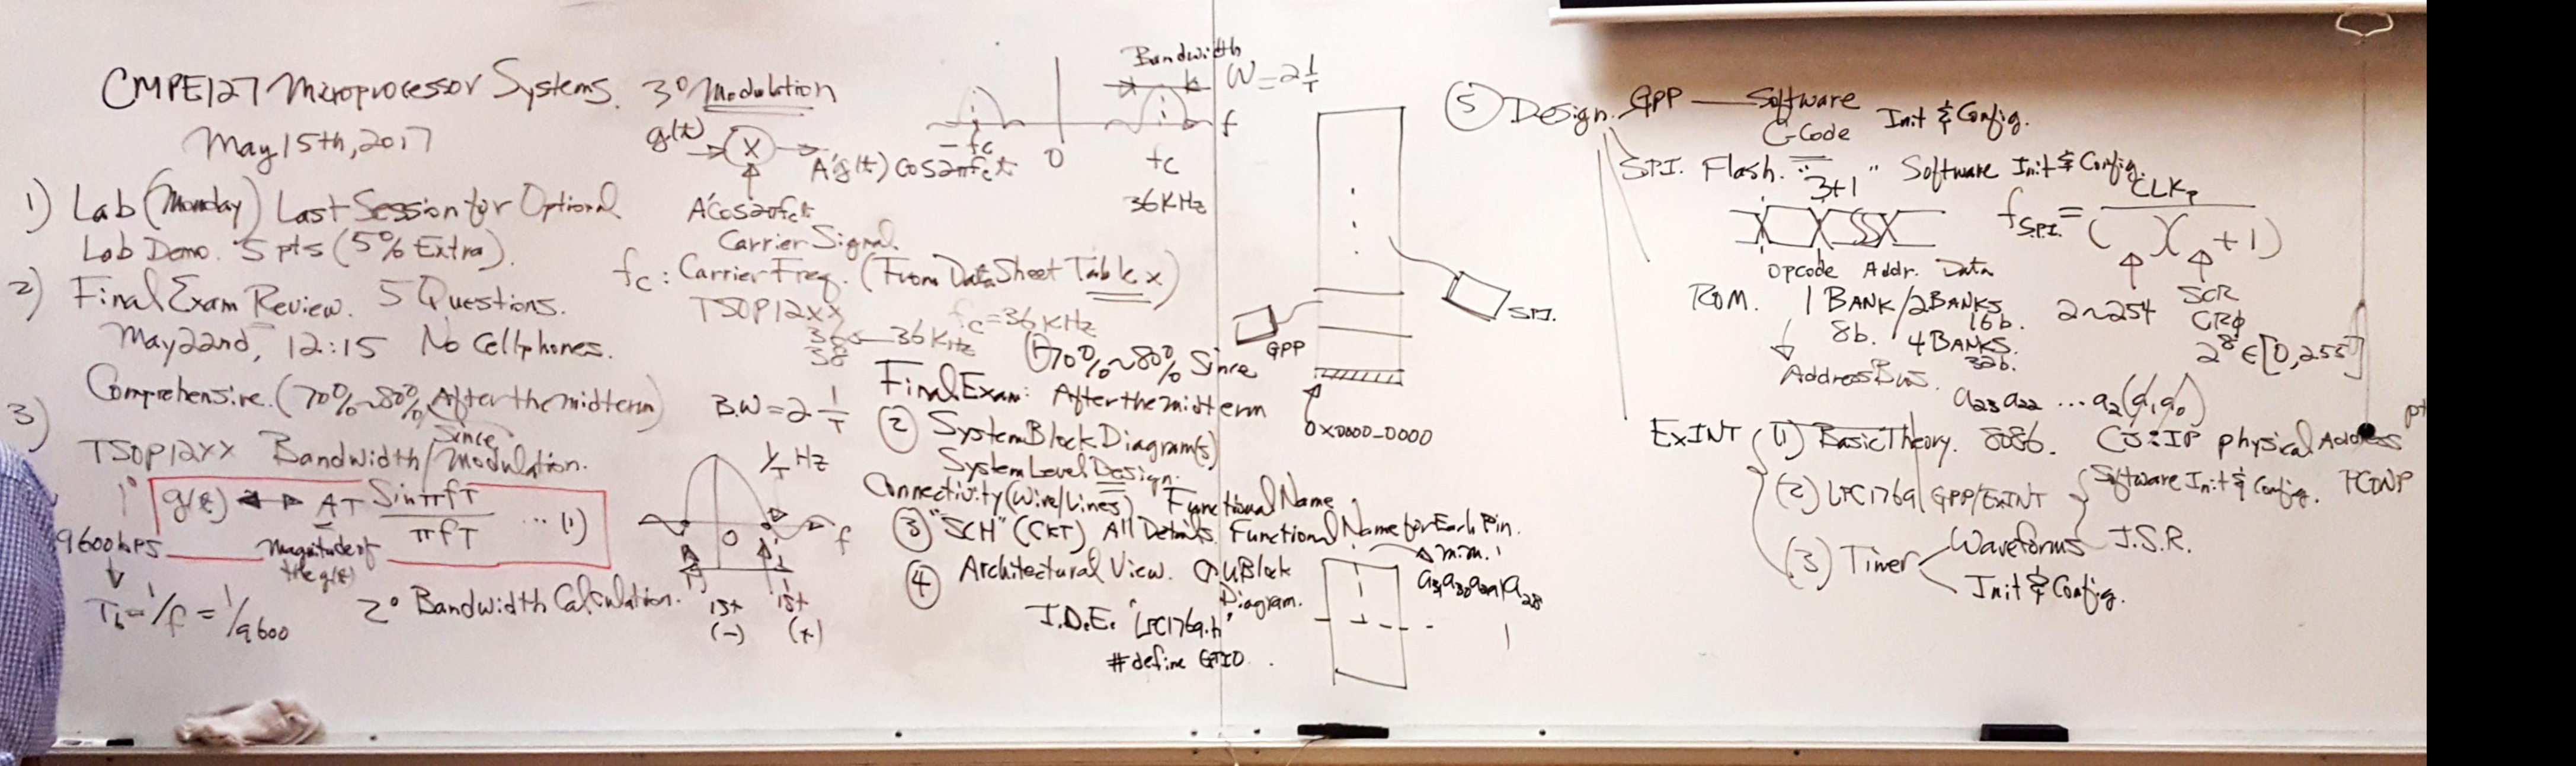 CMPE127 Microprocessor Systems.
May 15th, 2017
1) Lab (Monday) Last Session for Optional
Lab Demo. 5 pts (5% Extra).
2) Final Exam Review. 5 Questions.
May 22nd, 12:15 No Cellphones.
Comprehensive. (70%~80% After the midterm)
Since
3) TSOP12XX Bandwidth/Modulation.
1° g(t) ↔ AT Sin πfT / πfT ... (1)
Magnitude of
the g(t)
9600 bps
Tb = 1/f = 1/9600
2° Bandwidth Calculation.
3° Modulation
g(t) → X → A'g(t) Cos2πfct
A'Cos2πfct
Carrier Signal.
Bandwidth
W = 2 1/T
-fc 0 fc f
36KHz
fc : Carrier Freq. (From DataSheet Table x)
TSOP12XX fc = 36KHz
36 ← 36KHz
38
B.W = 2 1/T
1/T Hz
0 f
1st 1st
(-) (+)
Final Exam: (1) 70%~80% Since
After the midterm
(2) System Block Diagram(s)
System Level Design.
Connectivity (Wire/Lines) Functional Name
(3) "SCH" (CKT) All Details. Functional Name for Each Pin.
(4) Architectural View. CPU Block
Diagram.
I.D.E. "LPC1769.h"
#define GPIO ..
GPP
SPI.
0x0000_0000
m.m.
a31a30a29a28
(5) Design. GPP — Software
C-Code Init & Config.
SPI. Flash. " Software Init & Config.
3+1
Opcode Addr. Data
fSPI. = CLKp / ( )( +1)
2~254 SCR
CR0
2^8 ∈ [0,255]
ROM. 1 BANK/2BANKS
8b. 16b.
4BANKS.
32b.
Address Bus.
a23 a22 ... a2 (a1 a0)
ExINT (1) Basic Theory. 8086. CS:IP physical Address
(2) LPC1769 GPP/ExINT Software Init & Config. PCONP
(3) Timer Waveforms I.S.R.
Init & Config.